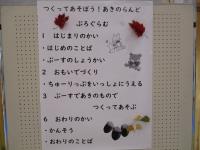 つくってあそぼう!あきのらんど
ぷろぐらむ
1 はじまりのかい
・はじめのことば
・ぶーすのしょうかい
2 おもいでづくり
・ちゅーりっぷをいっしょにうえる
3 ぶーすであきのもので
つくってあそぶ
6 おわりのかい
・かんそう
・おわりのことば